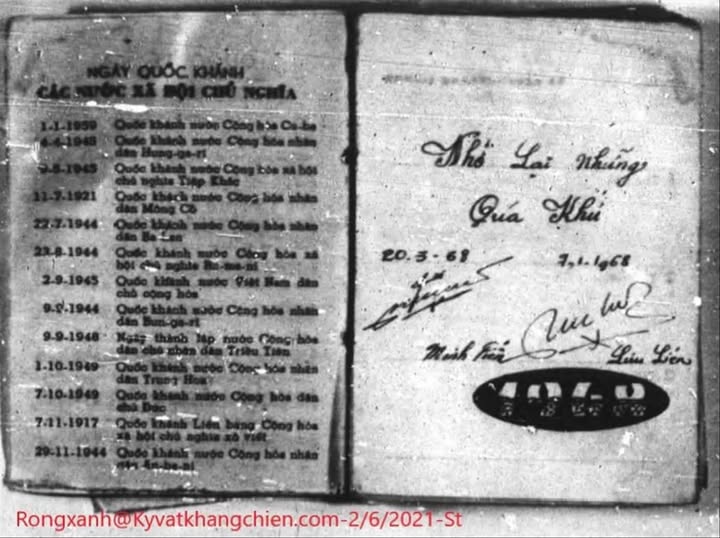 NGÀY QUỐC KHÁNH
CÁC NƯỚC XÃ HỘI CHỦ NGHĨA
1-1-1959 Quốc khánh nước Cộng hòa Cu-ba
4-4-1945 Quốc khánh nước Cộng hòa nhân
dân Hung-ga-ri
9-5-1945 Quốc khánh nước Cộng hòa xã hội
chủ nghĩa Tiệp Khắc
11-7-1921 Quốc khánh nước Cộng hòa nhân
dân Mông Cổ
22-7-1944 Quốc khánh nước Cộng hòa nhân
dân Ba Lan
23-8-1944 Quốc khánh nước Cộng hòa xã
hội chủ nghĩa Ru-ma-ni
2-9-1945 Quốc khánh nước Việt Nam dân
chủ cộng hòa
9-9-1944 Quốc khánh nước Cộng hòa nhân
dân Bun-ga-ri
9-9-1948 Ngày thành lập nước Cộng hòa
dân chủ nhân dân Triều Tiên
1-10-1949 Quốc khánh nước Cộng hòa nhân
dân Trung Hoa
7-10-1949 Quốc khánh nước Cộng hòa dân
chủ Đức
7-11-1917 Quốc khánh Liên bang Cộng hòa
xã hội chủ nghĩa xô viết
29-11-1944 Quốc khánh nước Cộng hòa nhân
dân An-ba-ni
Nhớ Lại Những
Qúa Khứ
20.3-68 7.1.1968
Minh Lưu Liên
1968
Rongxanh@Kyvatkhangchien.com-2/6/2021-St